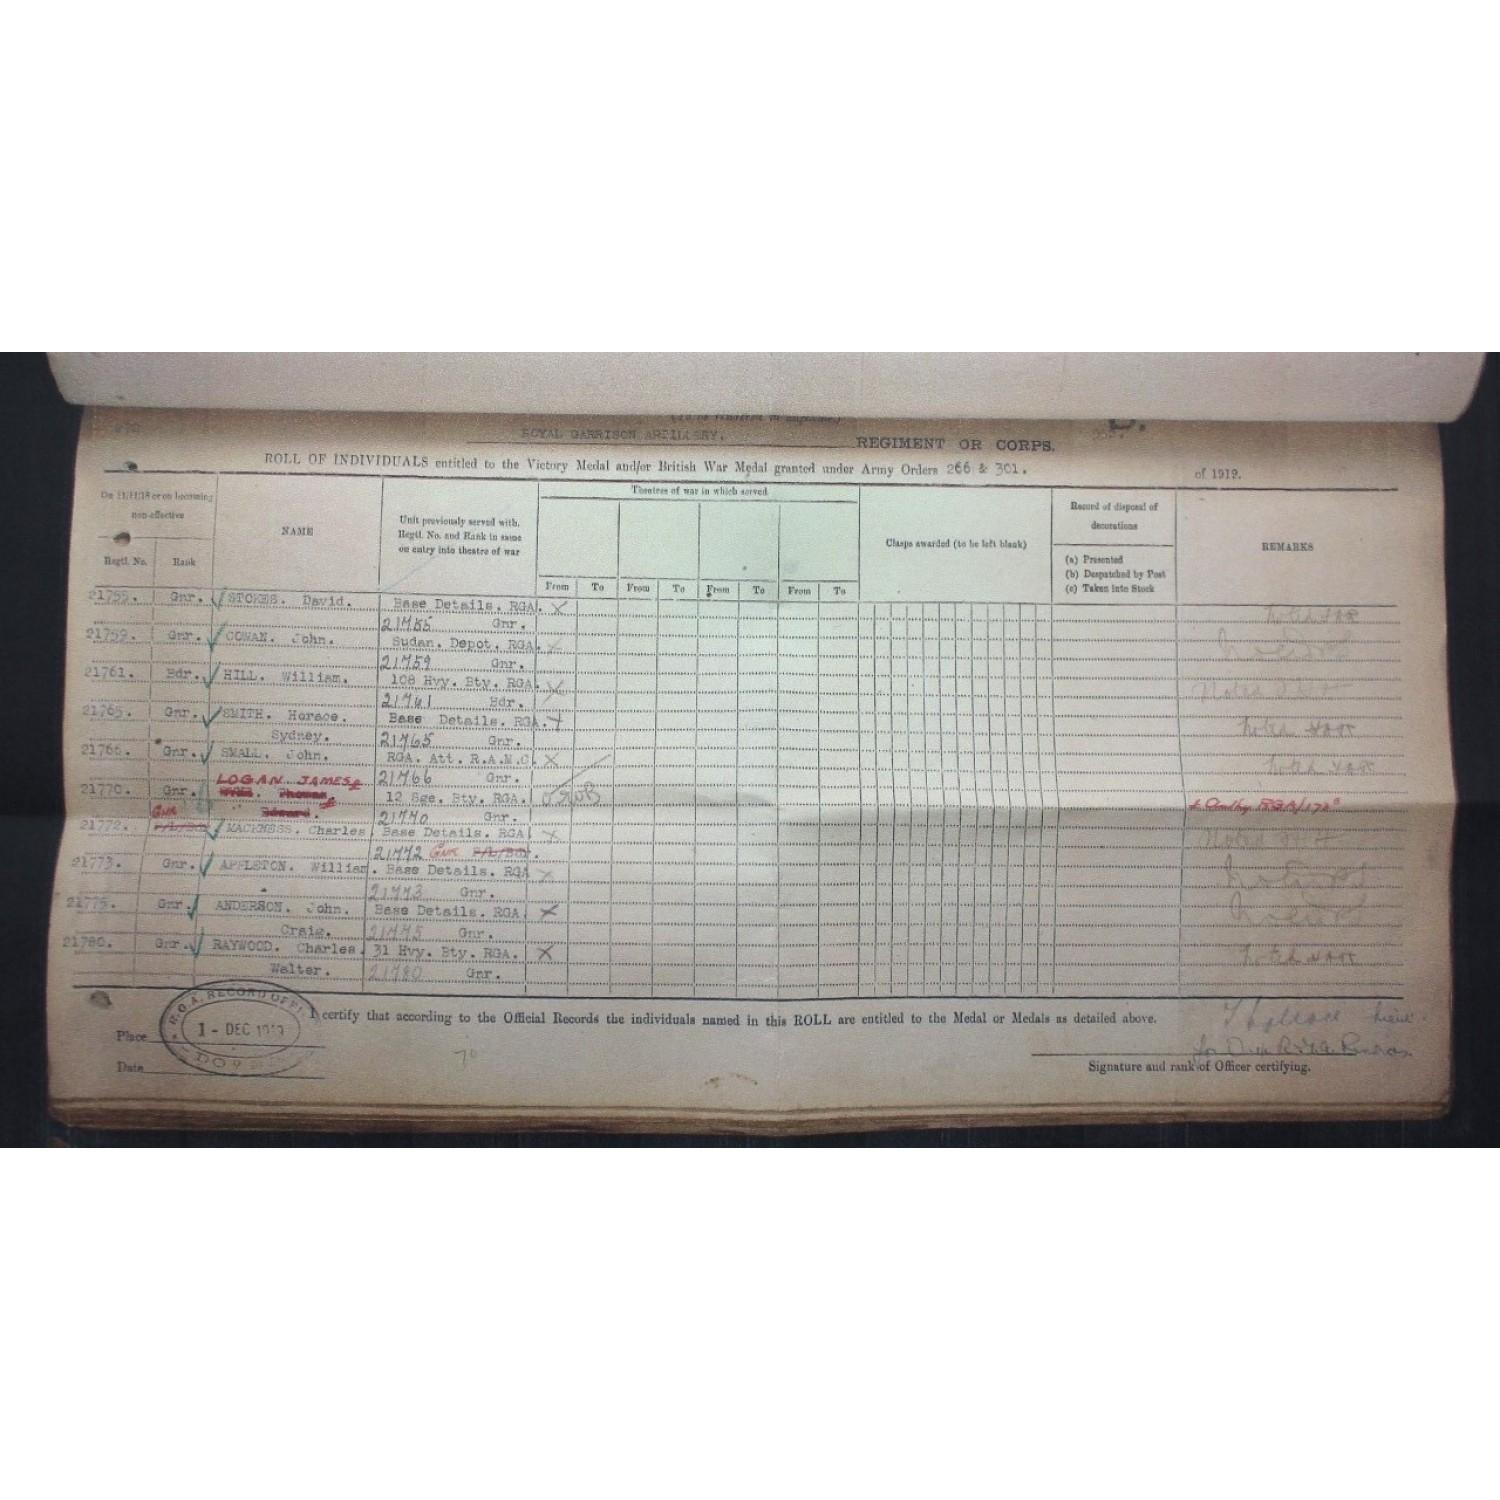 ROYAL GARRISON ARTILLERY. REGIMENT OR CORPS.
ROLL OF INDIVIDUALS entitled to the Victory Medal and/or British War Medal granted under Army Orders 266 & 301. of 1919.
On 11/11/18 or on becoming non-effective
Regtl. No. Rank
NAME
Unit previously served with. Regtl. No. and Rank in same on entry into theatre of war
Theatres of war in which served
From To From To From To From To
Clasps awarded (to be left blank)
Record of disposal of decorations
(a) Presented
(b) Despatched by Post
(c) Taken into Stock
REMARKS
21755. Gnr. STOKES. David. Base Details. RGA. X
21755 Gnr.
21759. Gnr. COWAN. John. Sudan. Depot. RGA. X
21759 Gnr.
21761. Bdr. HILL. William. 108 Hvy. Bty. RGA. X
21761 Bdr.
21765. Gnr. SMITH. Horace. Base Details. RGA. X
Sydney. 21765 Gnr.
21766. Gnr. SMALL. John. RGA. Att. R.A.M.C. X
LOGAN JAMES 21766 Gnr.
21770. Gnr. Thomas 12 Sge. Bty. RGA.
Edward. 21770 Gnr.
Gnr
21772. MACKNESS. Charles Base Details. RGA. X
21772 Gnr
21773. Gnr. APPLETON. William. Base Details. RGA X
21773 Gnr.
21775. Gnr. ANDERSON. John. Base Details. RGA. X
Craig. 21775 Gnr.
21780. Gnr. RAYWOOD. Charles. 31 Hvy. Bty. RGA. X
Walter. 21780 Gnr.
I certify that according to the Official Records the individuals named in this ROLL are entitled to the Medal or Medals as detailed above.
R.G.A. RECORD OFFICE
1 - DEC 1919
DOVER
Place
Date
70
Signature and rank of Officer certifying.